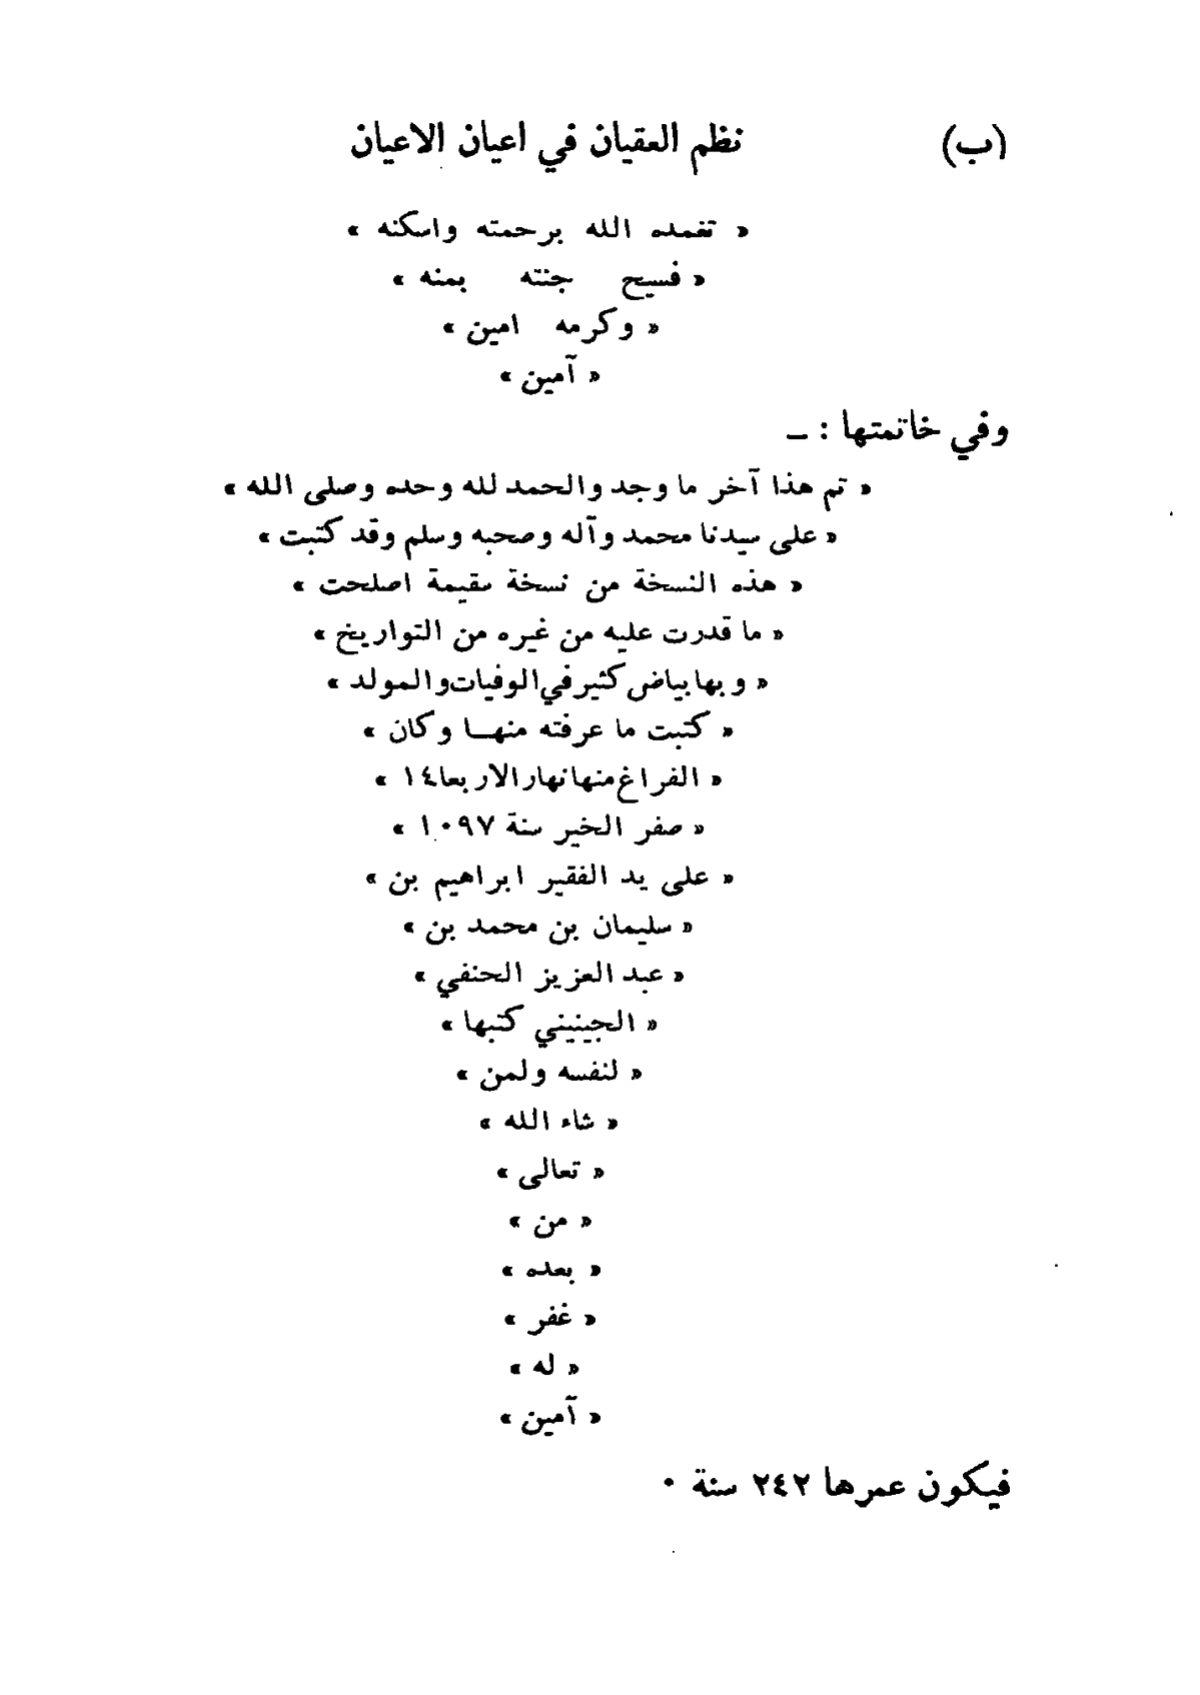 (ب) نظم العقيان في اعيان الاعيان
« تغمده الله برحمته واسكنه »
« فسيح جنته بمنه »
« وكرمه امين »
« آمين »
وفي خاتمتها : ــ
« تم هذا آخر ما وجد والحمد لله وحده وصلى الله »
« على سيدنا محمد وآله وصحبه وسلم وقد كتبت »
« هذه النسخة من نسخة سقيمة اصلحت »
« ما قدرت عليه من غيره من التواريخ »
« وبها بياض كثير في الوفيات والمولد »
« كتبت ما عرفته منهــا وكان »
« الفراغ منها نهار الاربعا ١٤ »
« صفر الخير سنة ١٠٩٧ »
« على يد الفقير ابراهيم بن »
« سليمان بن محمد بن »
« عبد العزيز الحنفي »
« الجينيني كتبها »
« لنفسه ولمن »
« شاء الله »
« تعالى »
« من »
« بعده »
« غفر »
« له »
« آمين »
فيكون عمرها ٢٤٢ سنة ٠